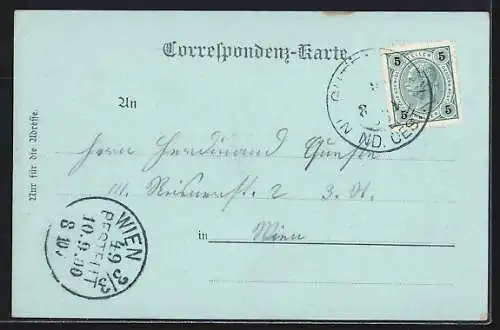 Correspondenz-Karte.
5 5
5 5
GUTEN
IN ND. OEST.
8
An
Herrn Ferdinand
III. Reisnerstr. 2 3. St.
in Wien
Nur für die Adresse.
WIEN 3/3
49
BESTELLT
10.9.00
8 10V